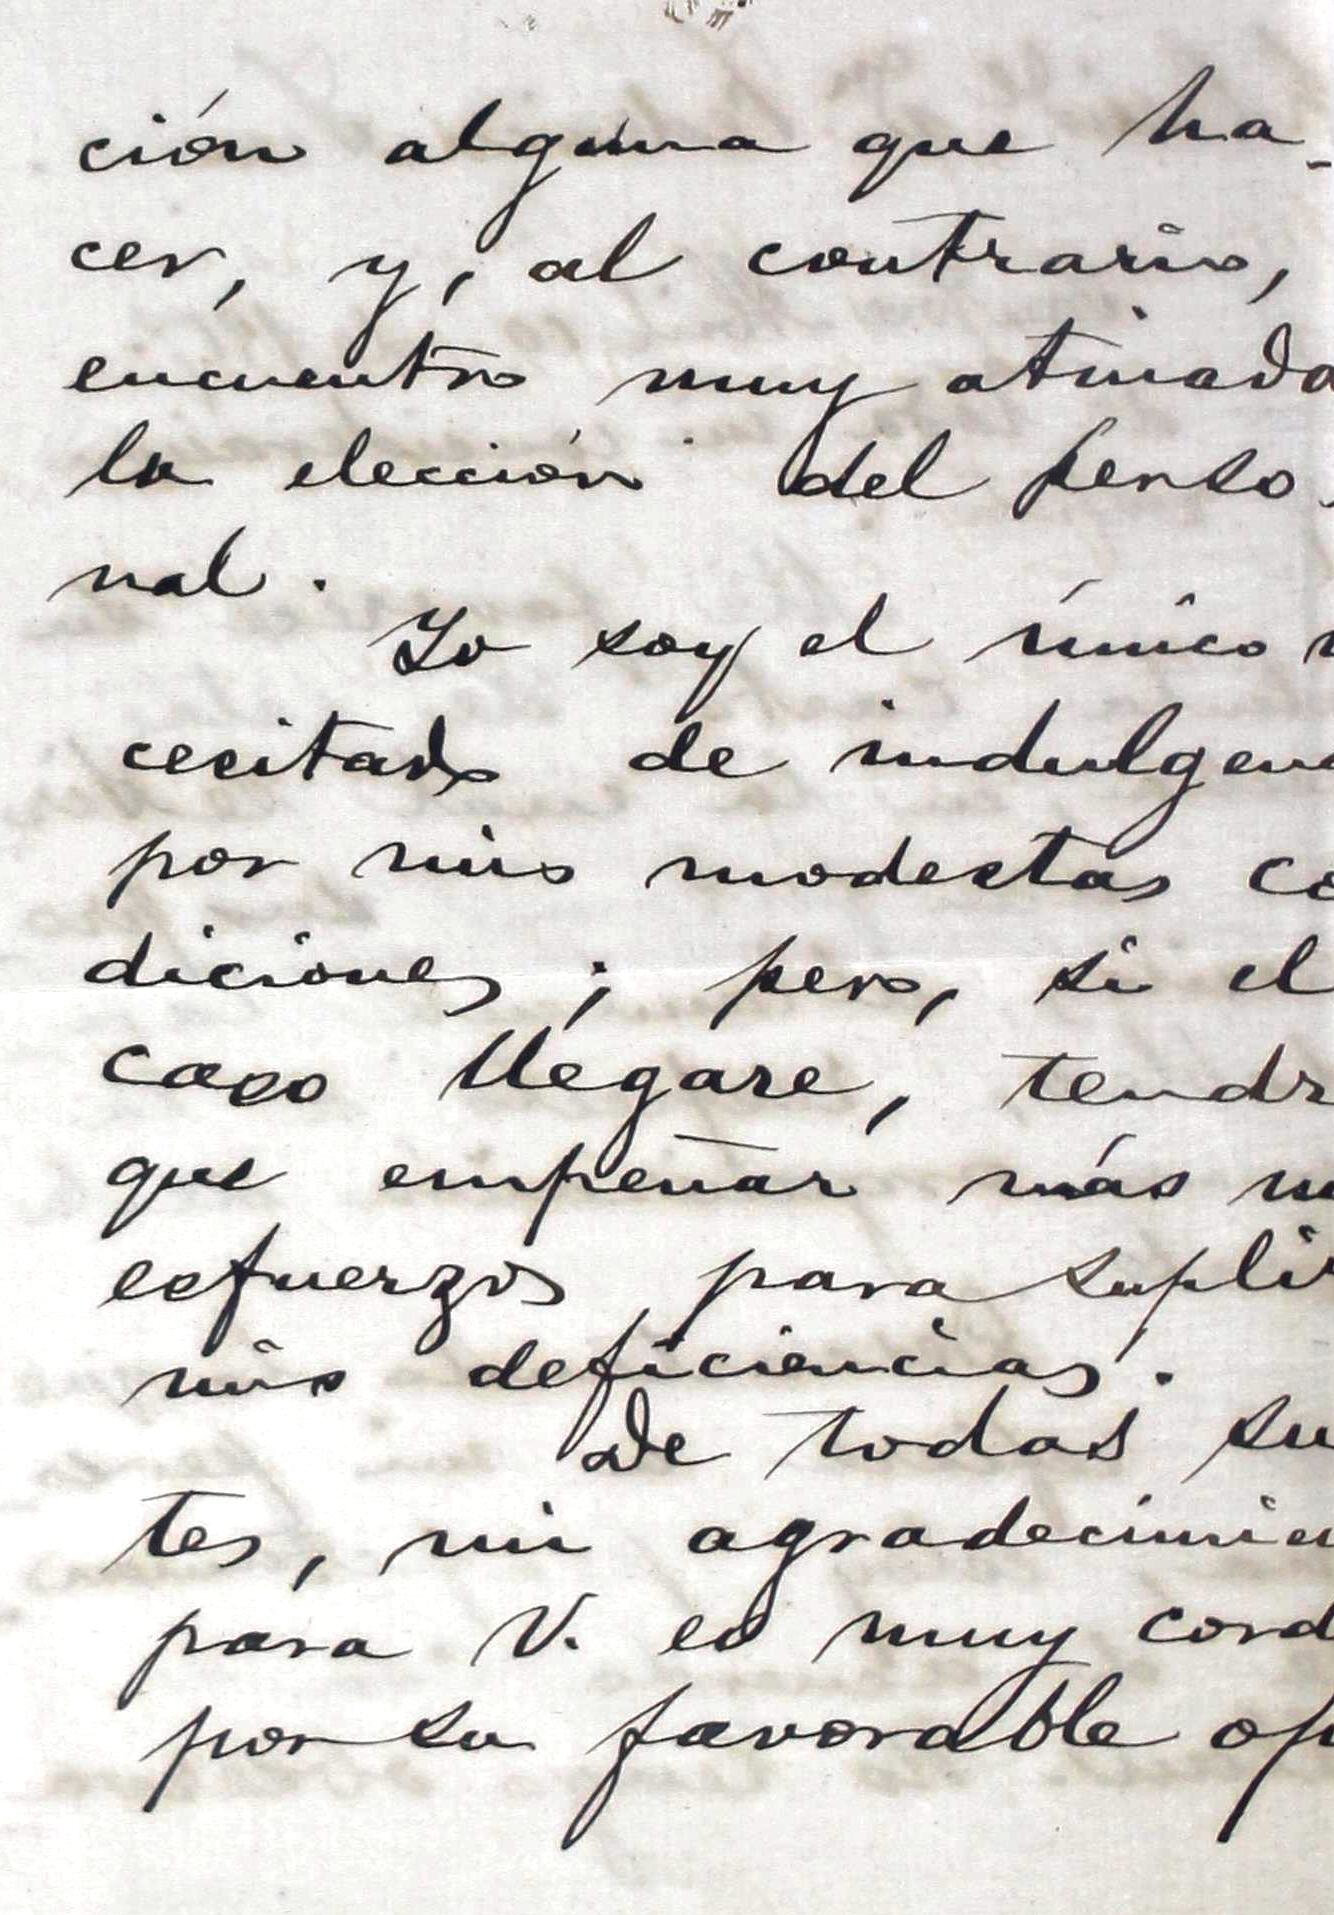 ción alguna que ha-
cer, y, al contrario,
encuentro muy atinada
la elección del perso-
nal.
Yo soy el único n
cesitado de indulgenc
por mis modestas co
diciones; pero, si el
caso llegare, tendr
que empeñar más m
esfuerzos para suplir
mis deficiencias.
De todas su
tes, mi agradecimien
para V. es muy cord
por su favorable op